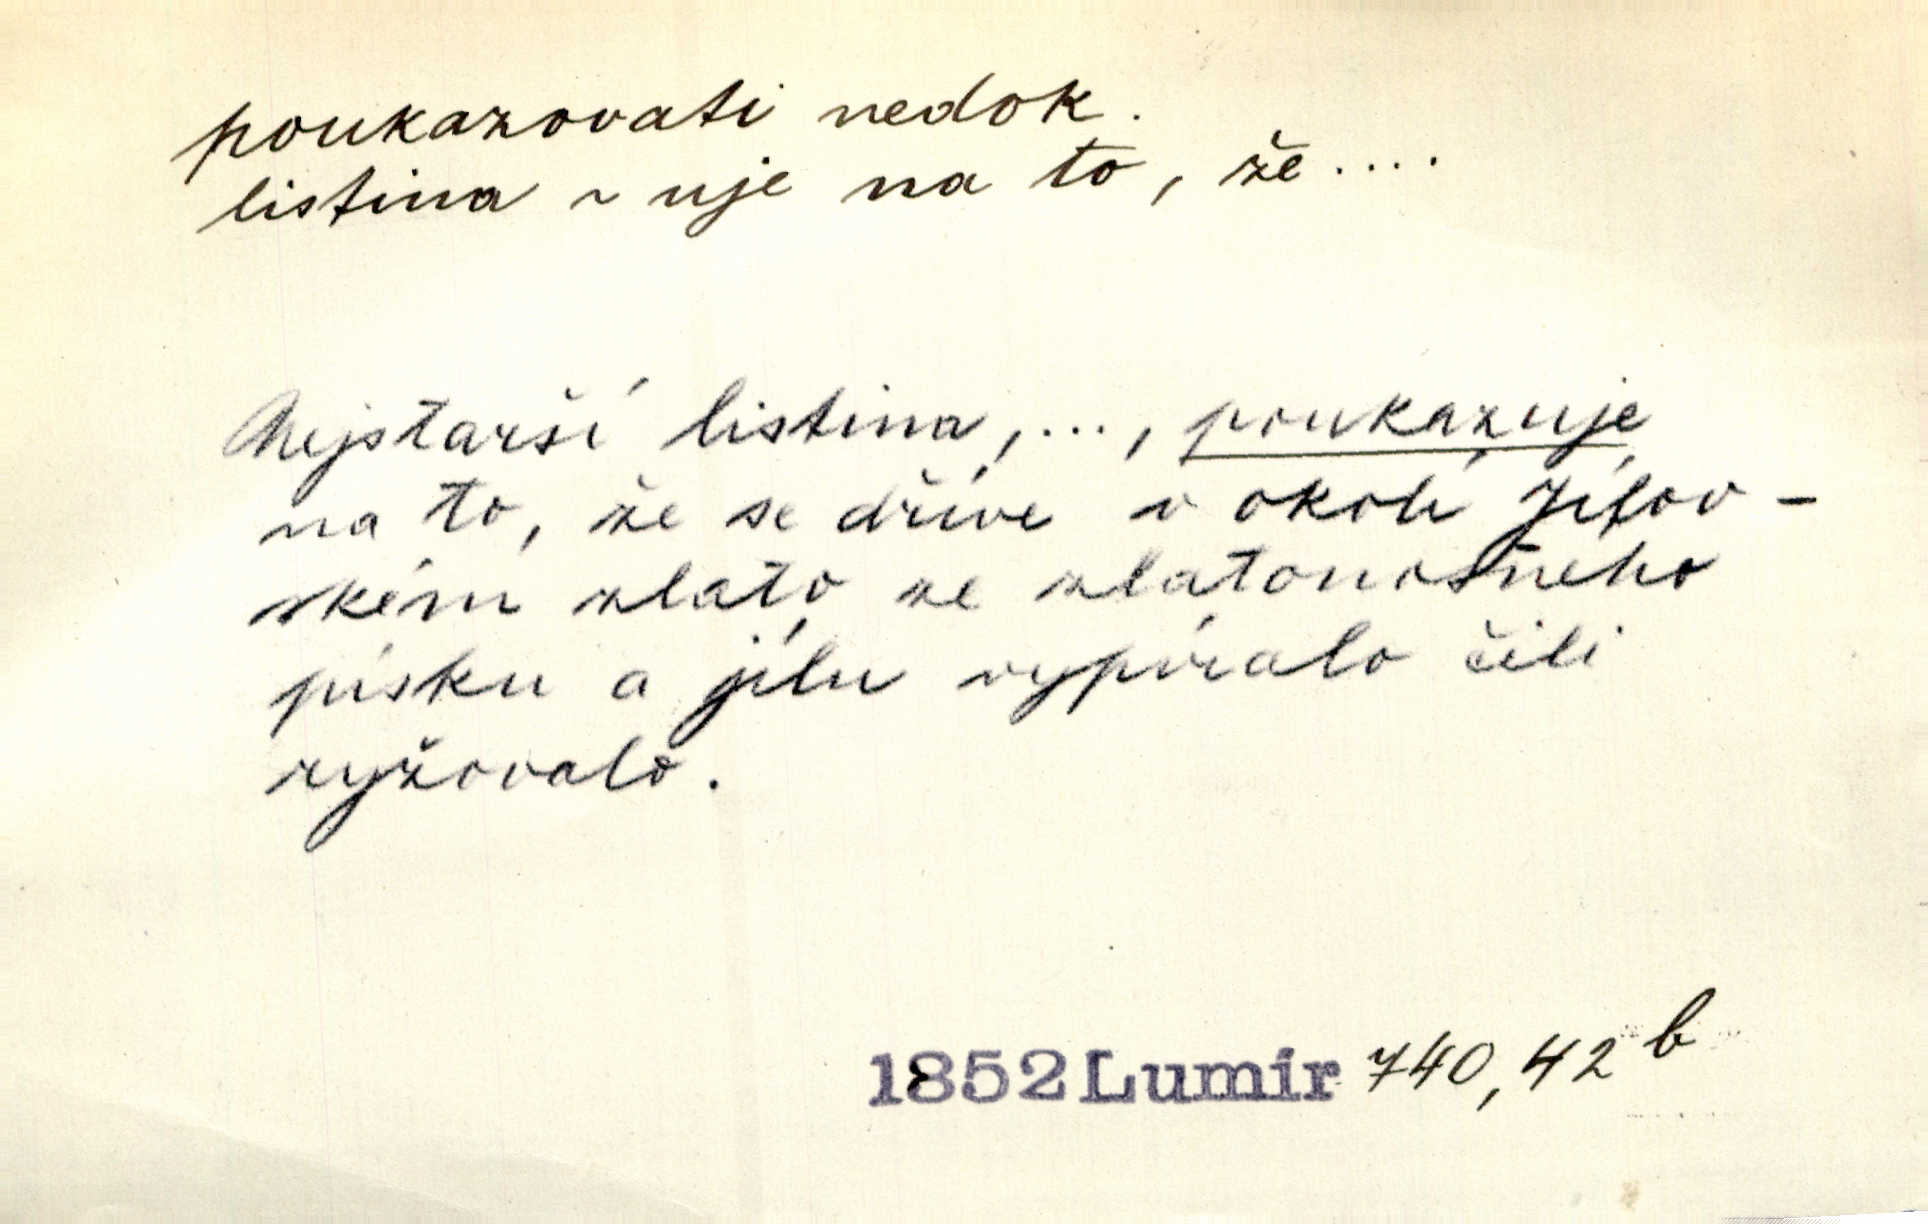 poukazovati nedok.
listina ~ uje na to, že....
Nejstarší listina,..., poukazuje
na to, že se dříve v okolí Jílov-
ském zlato ze zlatonosného
písku a jílu vypíralo čili
rýžovalo.
1852 Lumír 740, 42 b